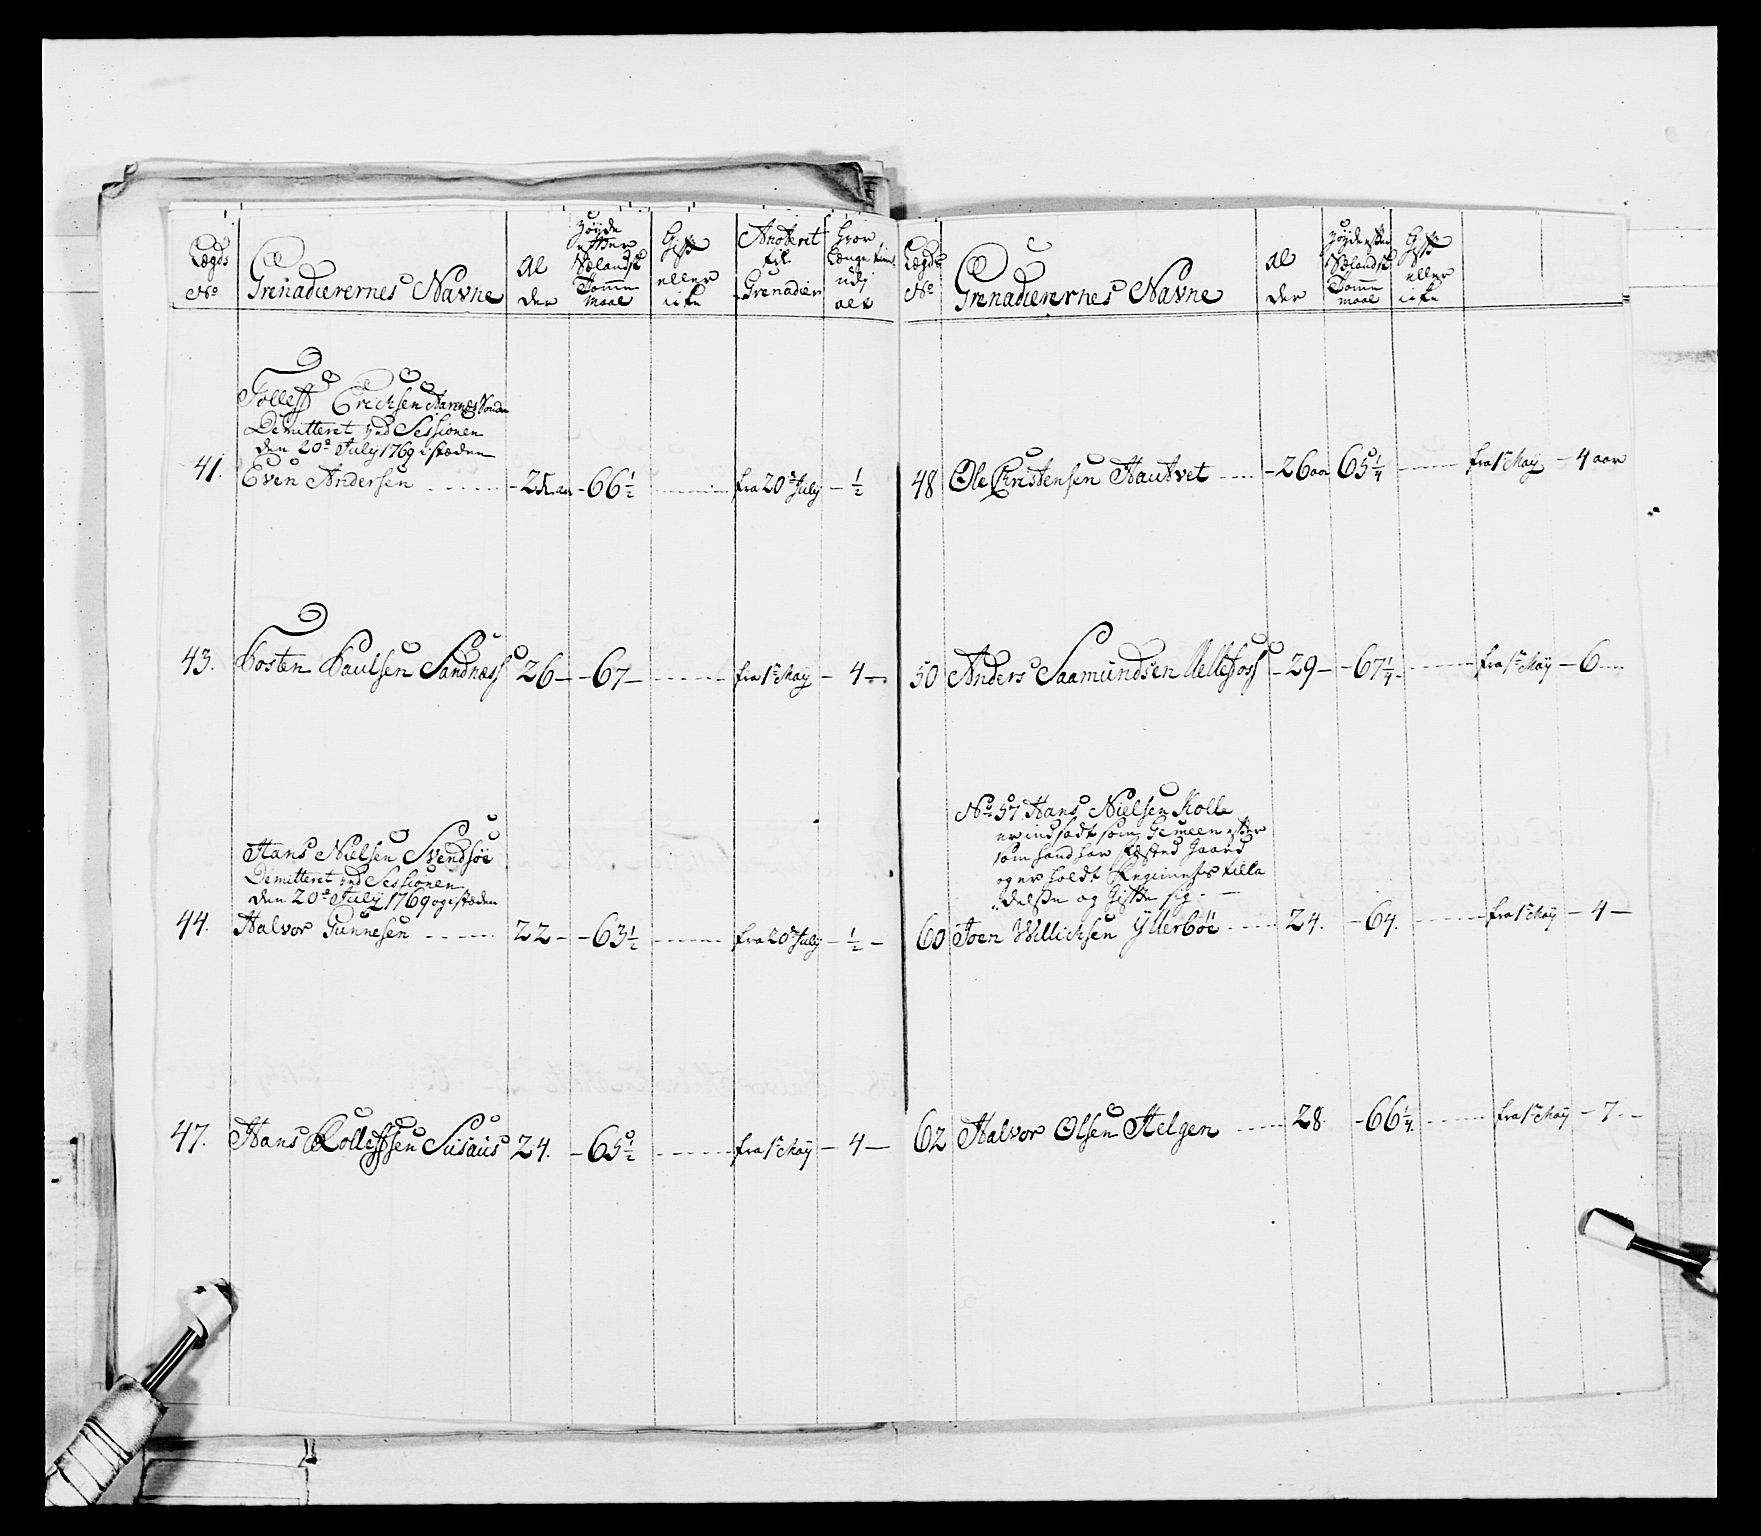 Lægds No
Grenadierernes Navne
Al der
Høyde efter Siælandsk Tomme maal
Gift eller icke
Anoteret til Grenadier
Hvor Længe tient udj alt
Tolleff Erichsen
Demitteret ved Sessionen
den 20de July 1769 i stæden
41. Even Andersen - 25 aar - 66 1/2 fra 20de July - 1/2
43. Tosten Paulsen Sandnæss 26 - 67 - fra 1te May - 4 -
Hans Nielsen Svendsöe
Demitteret ved Sessionen
den 20de July 1769 og i stæden
44. Halvor Gunnesen 22 - 63 1/2 fra 20de July - 1/2 -
47. Hans Rolleffsen Susaas 24. - 65 1/2 fra 1te May - 4 -
Lægds No
Grenadierernes Navne
Al der
Høyde efter Siælandsk Tomme maal
Gift eller icke
48 Ole Christensen Hautvet - 26 aar 65 1/4 fra 1te May - 4 aar
50 Anders Saamundsen Mellefoss - 29 - 67 1/4 fra 1te May - 6
No 57 Hans Nielsen Kolle
er indsadt som Gemeen efter
som hand har fæsted Gaard
og er holdt Regiments tilla
delse og Gifte sig
60 Joen Willichsen Yllerböe 24. - 64. fra 1te May - 4 -
62 Halvor Olsen Helgen 28. - 66 1/4. fra 1te May - 7 -